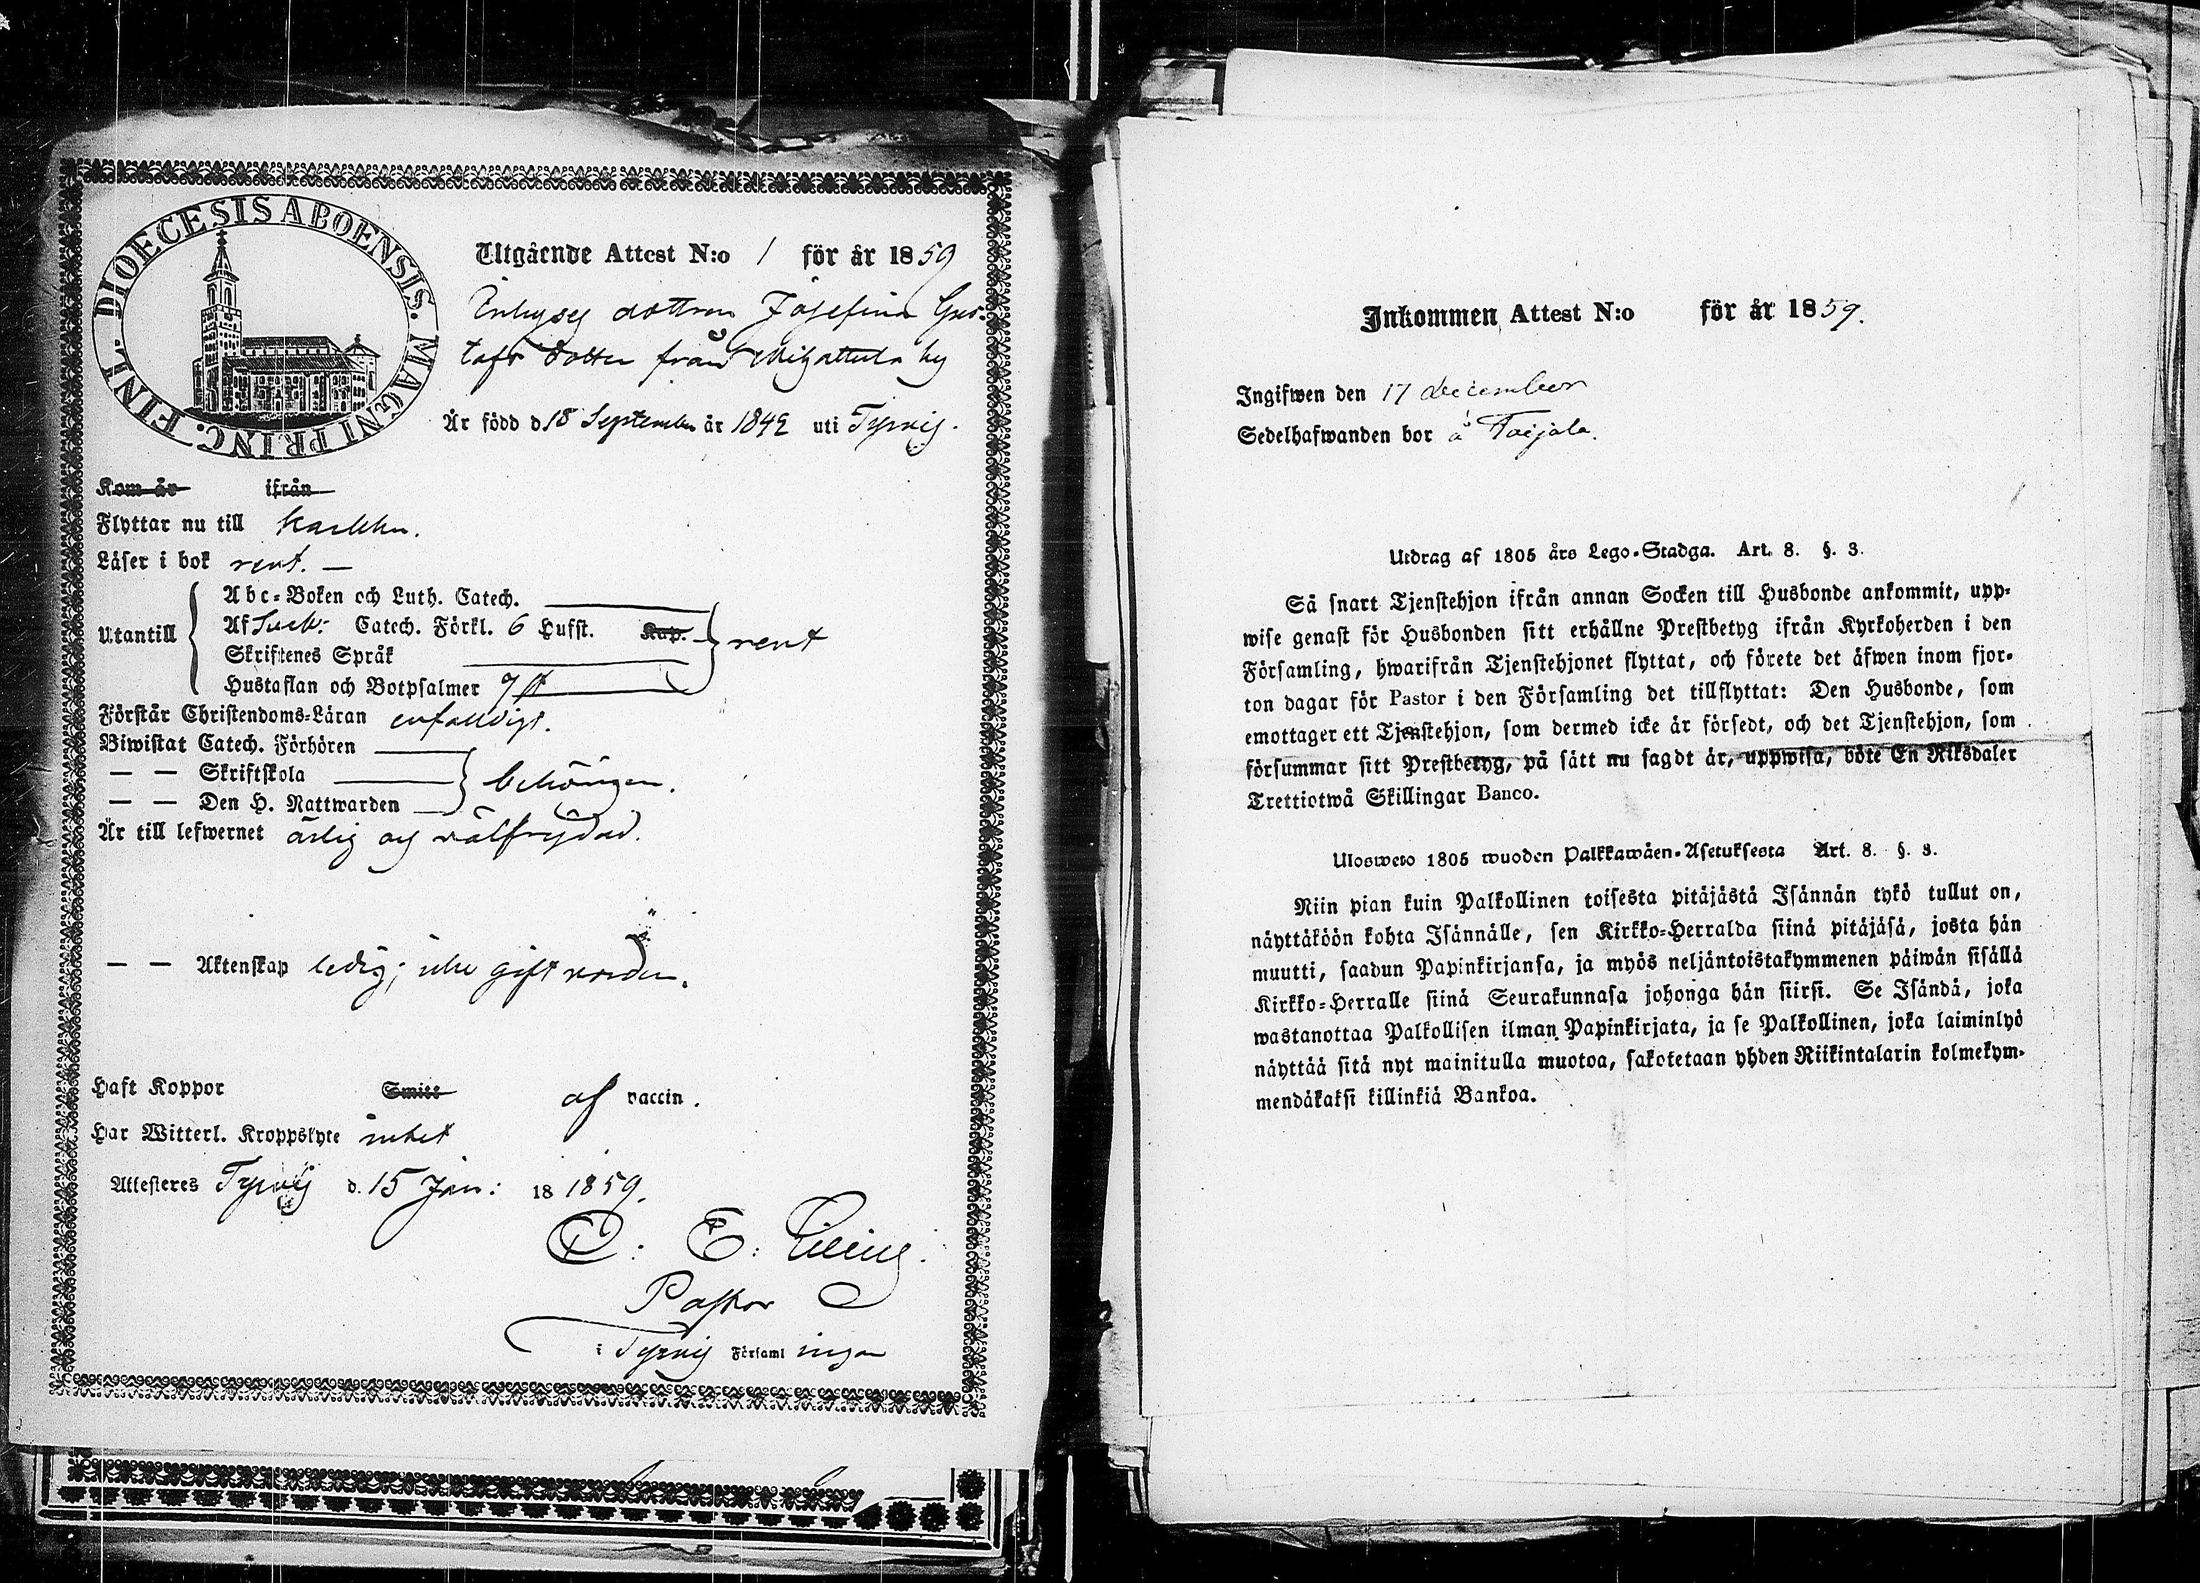 DIOECESIS ABOENSIS. MAGNI PRINC. FINL.
Utgående Attest N:o 1 för år 1859
dottren Josefina Gus-
tafs dotter från by
Är född d 18 September år 1842 uti Tyrvis.
Kom år ifrån
Flyttar nu till Karkku.
Läser i bok rent. —
Utantill
Abc-Boken och Luth. Catech.
Af Sveb: Catech. Förkl. 6 Hufst. Kap.
Skriftenes Språk
Hustaflan och Botpsalmer
rent
Förstår Christendoms-Läran enfaldigt.
Biwistat Catech. Förhören
— — Skriftskola
— — Den H. Nattwarden
behörigen.
Är till lefwernet ärlig och välfrejdad.
— — Äktenskap ledig; icke gift vorden.
Haft Koppor Smitt af vaccin.
Har Witterl. Kroppslyte intet
Attesteres Tyrvis d. 15 Jan: 18 1859.
E:
Pastor
i Tyrvis Församl ingar
Inkommen Attest N:o för år 1859.
Ingifwen den 17 december
Sedelhafwanden bor å Toijala.
Utdrag af 1805 års Lego-Stadga. Art. 8. §. 3.
Så snart Tjenstehjon ifrån annan Socken till Husbonde ankommit, upp-
wise genast för Husbonden sitt erhållne Prestbetyg ifrån Kyrkoherden i den
Församling, hwarifrån Tjenstehjonet flyttat, och förete det äfwen inom fjor-
ton dagar för Pastor i den Församling det tillflyttat: Den Husbonde, som
emottager ett Tjenstehjon, som dermed icke är försedt, och det Tjenstehjon, som
försummar sitt Prestbetyg, på sätt nu sagdt är, uppwisa, böte En Riksdaler
Trettiotwå Skillingar Banco.
Ulosweto 1805 wuoden Palkkawäen-Asetuksesta Art. 8. §. 3.
Niin pian kuin Palkollinen toisesta pitäjästä Isännän tykö tullut on,
näyttäköön kohta Isännälle, sen Kirkko-Herralda siinä pitäjäsä, josta hän
muutti, saadun Papinkirjansa, ja myös neljäntoistakymmenen päiwän sisällä
Kirkko-Herralle siinä Seurakunnasa johonga hän siirsi. Se Isändä, joka
wastanottaa Palkollisen ilman Papinkirjata, ja se Palkollinen, joka laiminlyö
näyttää sitä nyt mainitulla muotoa, sakotetaan yhden Riikintalarin kolmekym-
mendäkaksi killinkiä Bankoa.